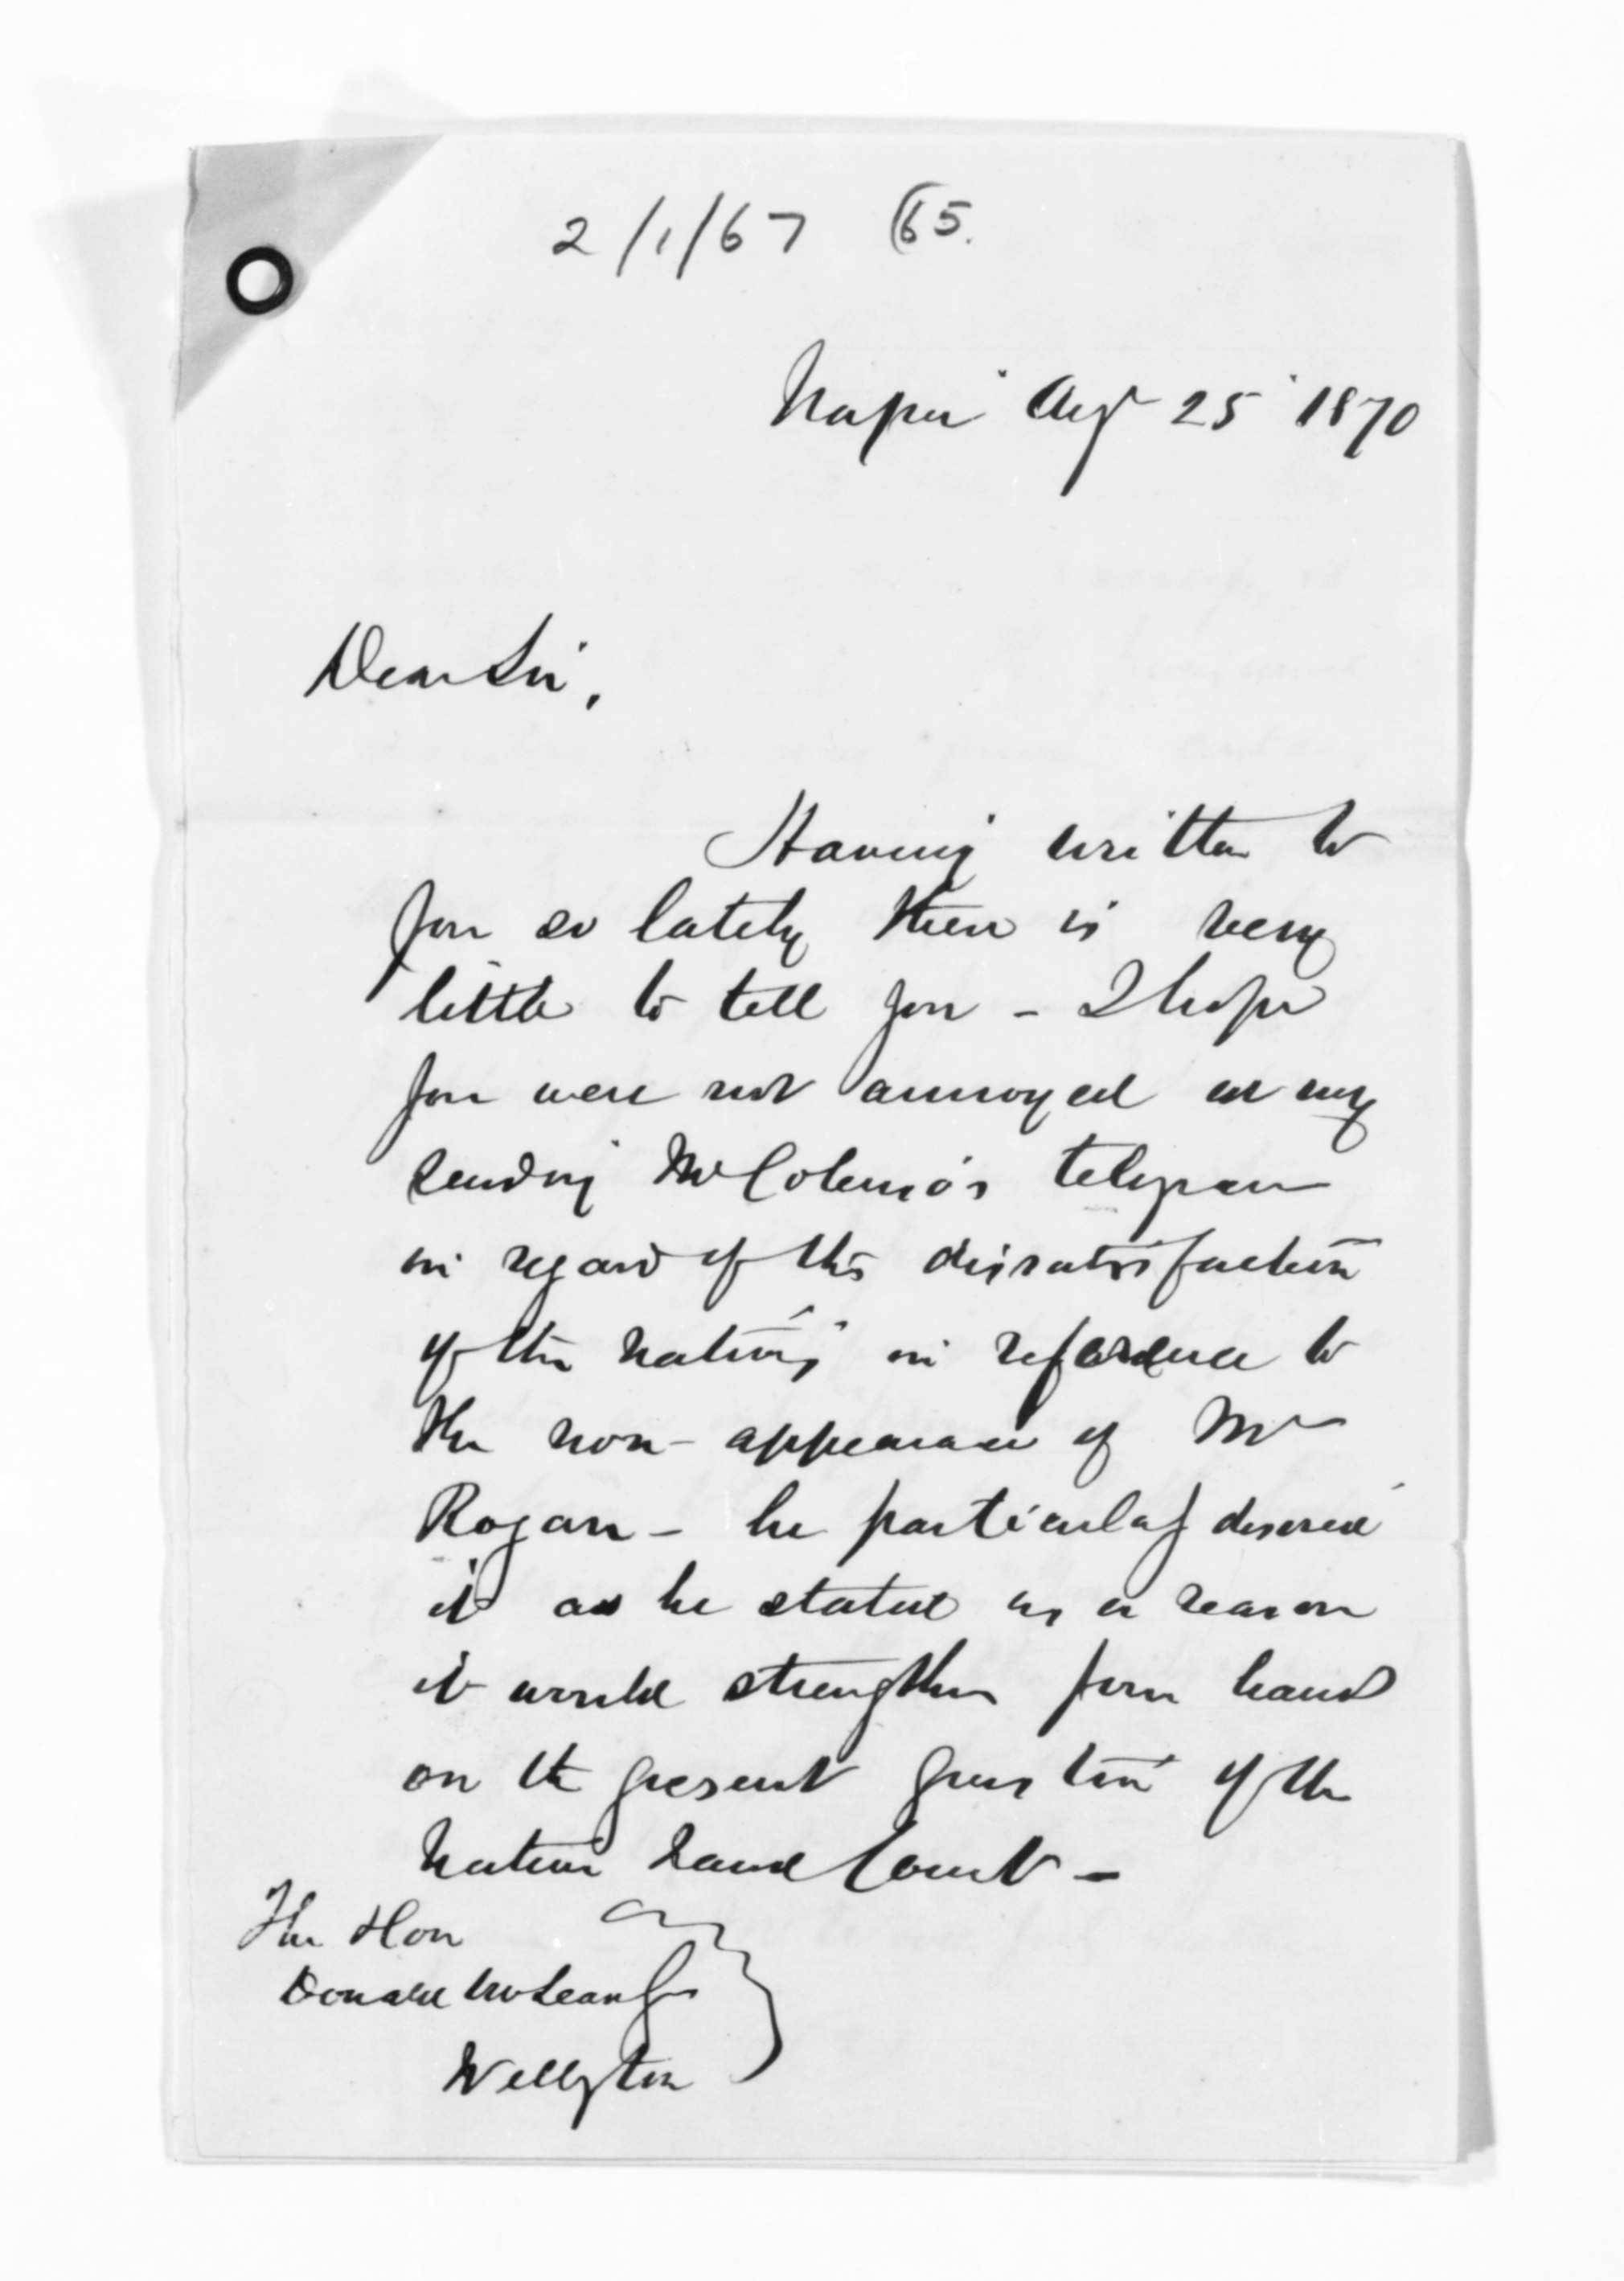 2/1/67 (65.
Napier Augt 25 1870
Dear Sir,
Having written to
you so lately there is very
little to tell you - I hope
you were not annoyed at my
sending Mr Colenso's telegram
in regard of the dissatisfaction
of the natives in reference to
the non-appearance of Mr
Rogan - he particularly desired
it as he stated as a reason
it would strengthen your hand
on the present question of the
Native Land Court -
The Hon
Donald McLean Esqr
Wellington